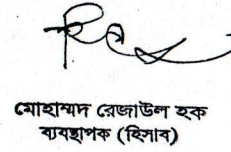 মোহাম্মদ রেজাউল হক
ব্যবস্থাপক (হিসাব)